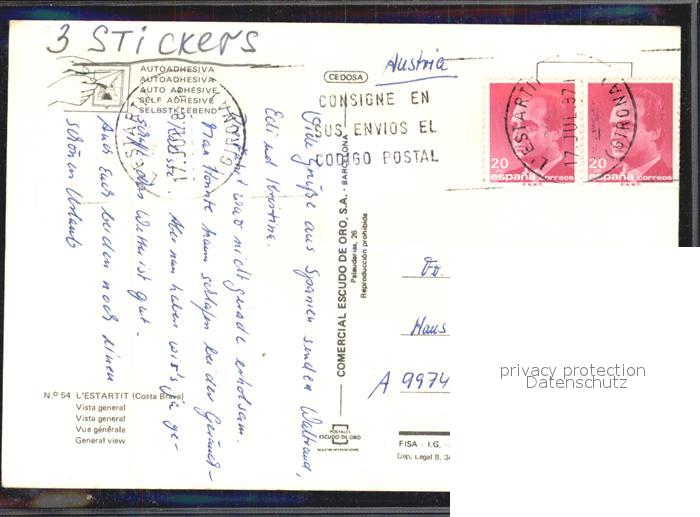 3 STICKERS
AUTOADHESIVA
AUTOADHESIVA
AUTO ADHESIVE
SELF ADHESIVE
SELBSTKLEBEND
CEDOSA
Austria
CONSIGNE EN
SUS ENVIOS EL
CODIGO POSTAL
L'ESTARTIT
17 JUL 87
GIRONA
20
españa correos
F.N.M.T.
20
españa correos
F.N.M.T.
Viele Grüße aus Spanien senden Waltraud,
Edi und Kristina.
war nicht gerade erholsam.
Man konnte kaum schlafen bei der Geräusch-
kulisse. Aber nun haben wir's ja ge-
schafft. Das Wetter ist gut.
Auch Euch beiden noch einen
schönen Urlaub
COMERCIAL ESCUDO DE ORO, S.A. - BARCELONA
Palaudarias, 26
Reproducción prohibida
Fr.
Haus
A 9974
privacy protection
Datenschutz
N.º 54 L'ESTARTIT (Costa Brava)
Vista general
Vista general
Vue générale
General view
POSTALES
ESCUDO DE ORO
FISA - I.G. -
Dep. Legal B. 3